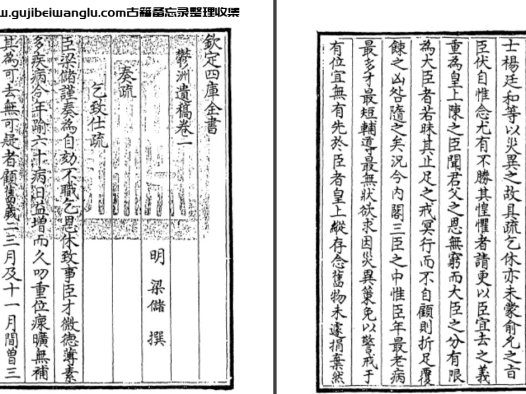 w.gujibeiwanglu.com古籍备忘录整理收集
欽定四庫全書
鬱洲遺稿卷一
明 梁儲 撰
奏疏
乞致仕疏
臣梁儲謹奏為自劾不職乞恩休致事臣才微德薄素
多疾病今年踰六十病日益增而久叨重位瘝曠無補
其為可去無可疑者顧舊歲二三月及十一月間曾三
士楊廷和等以災異之故具疏乞休亦未蒙俞允之旨
臣伏自惟念尤有不勝其惶懼者請更以臣宜去之義
重為皇上陳之臣聞君父之恩無窮而大臣之分有限
為大臣者若昧其止足之戒冥行而不自顧則折足覆
餗之凶咎隨之矣況今內閣三臣之中惟臣年最老病
最多才最短輔導最無狀欲求因災異策免以警戒于
有位宜無有先於臣者皇上縱存念舊物未遽捐棄然